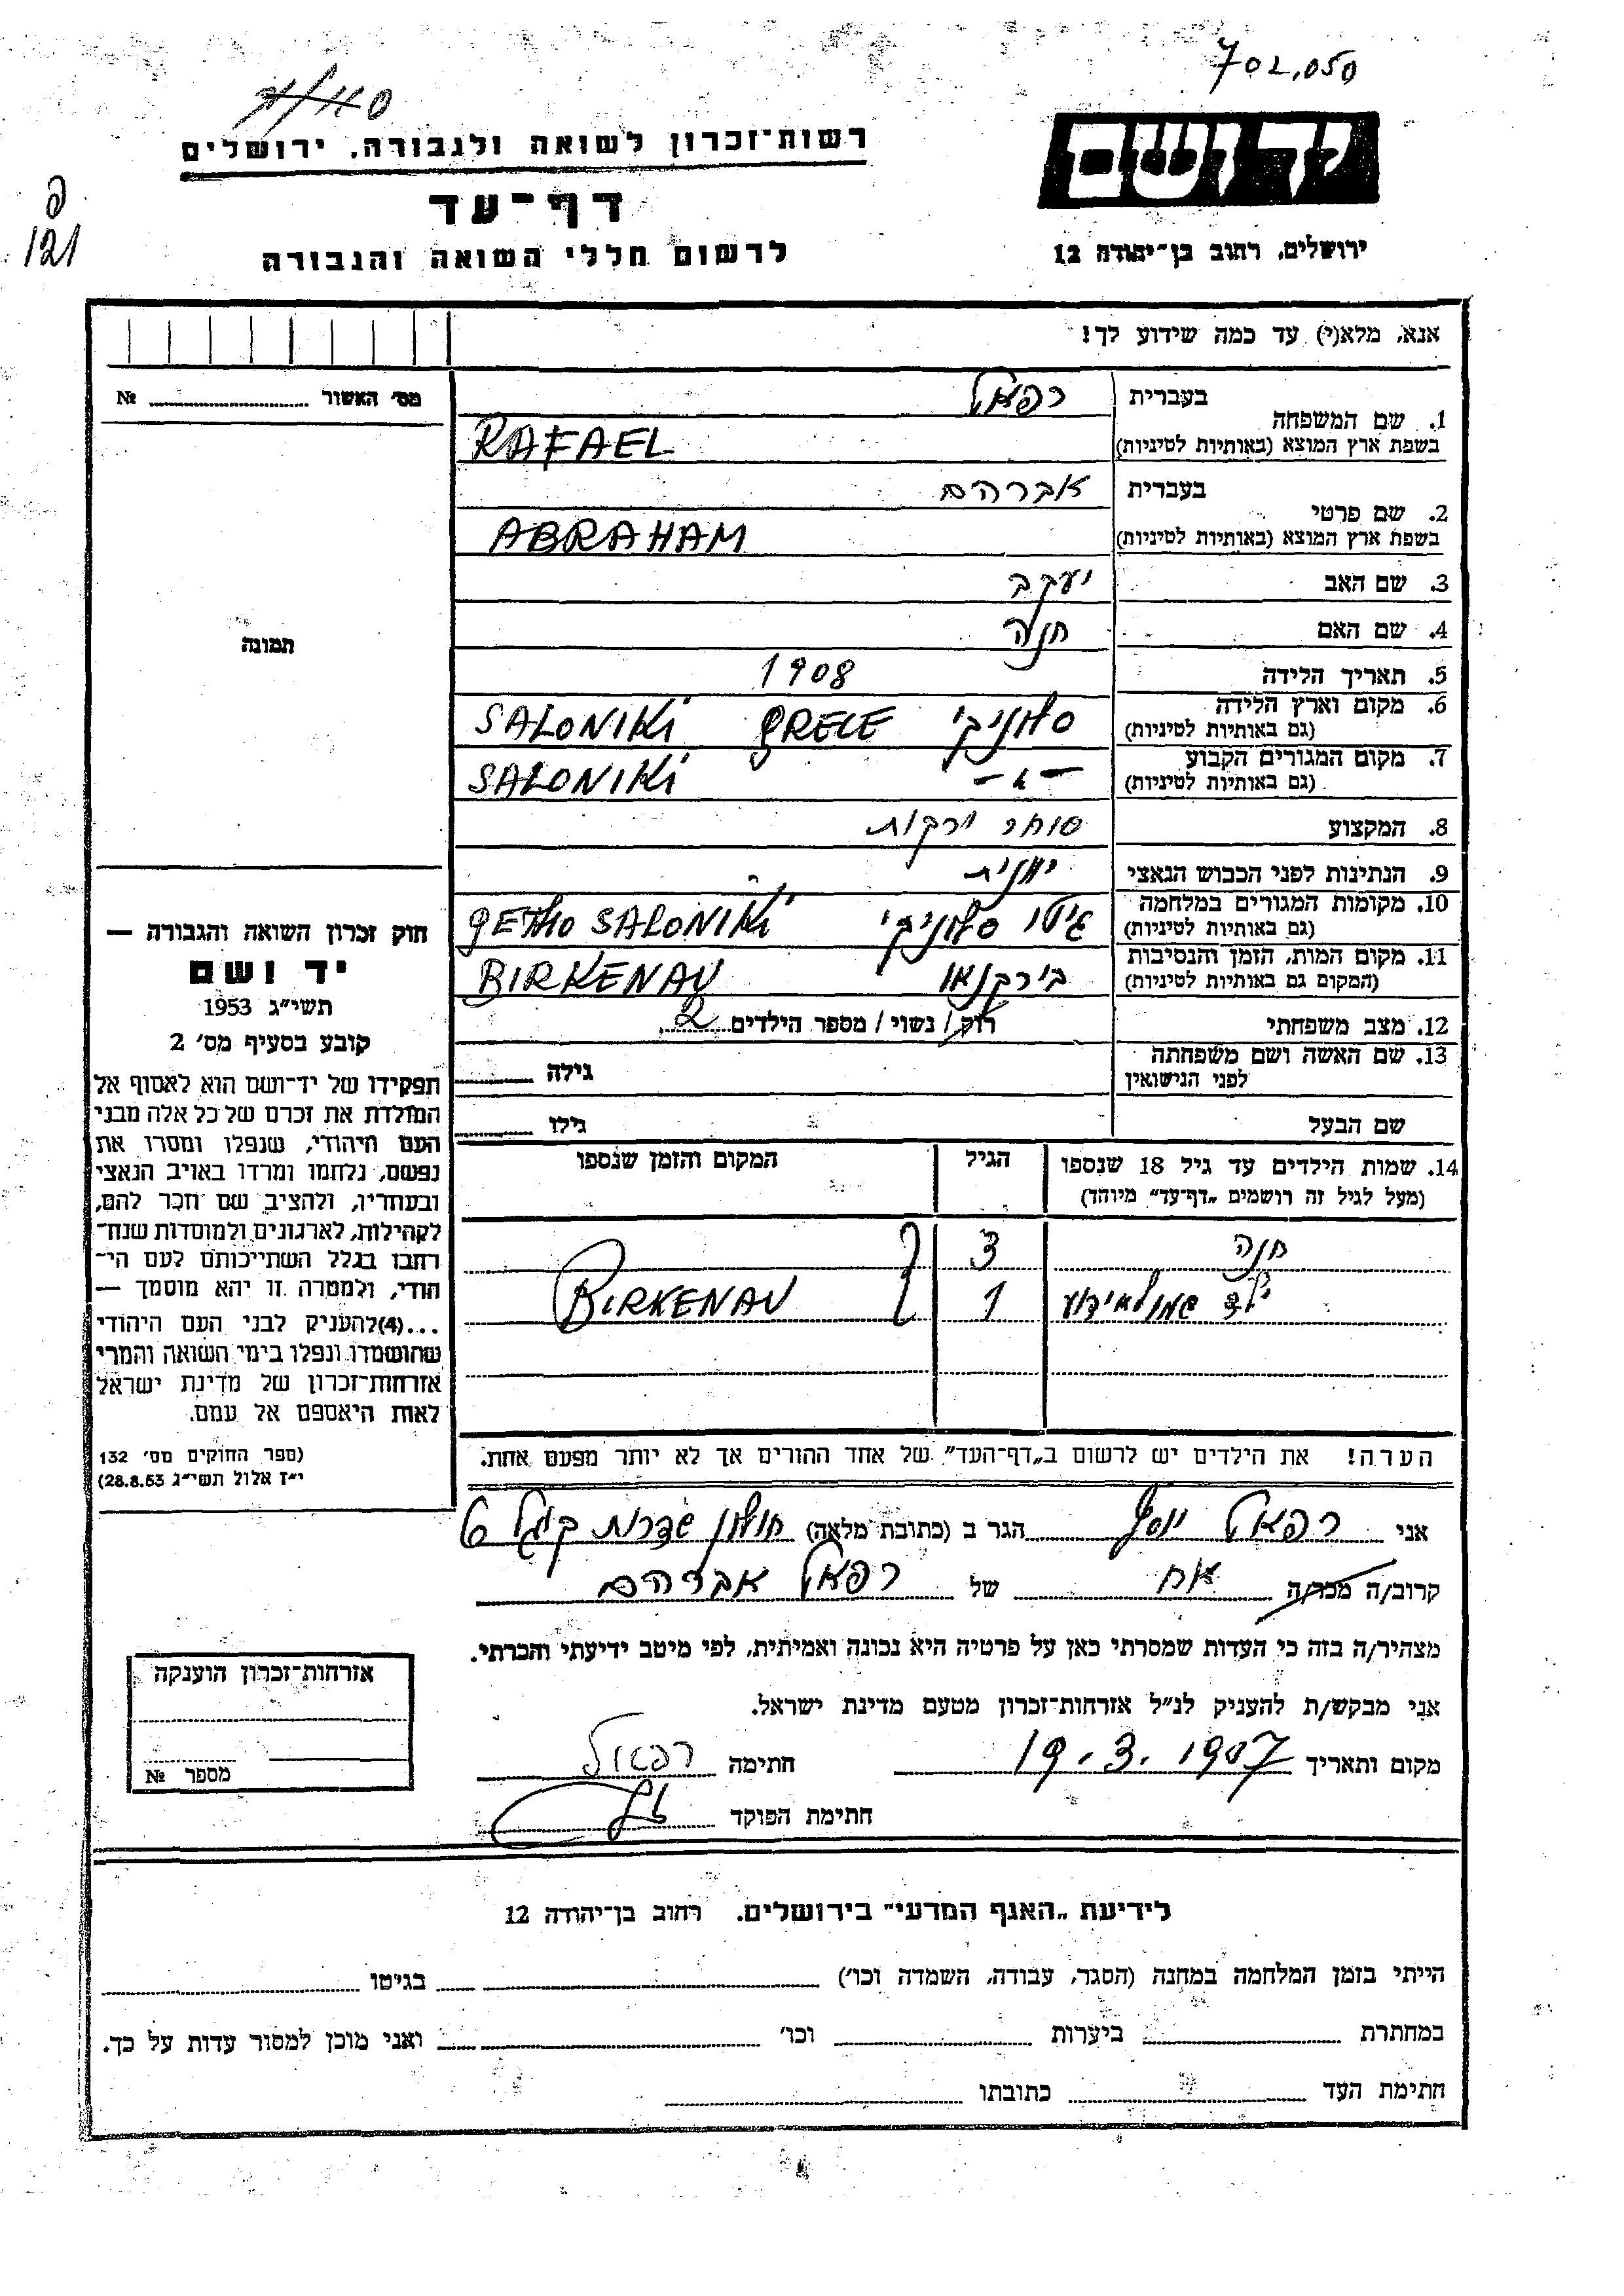 702,050
רשות־זכרון לשואה ולגבורה, ירושלים
יד ושם
דף־עד
פ
121
לרשום חללי השואה והגבורה
ירושלים, רחוב בן־יהודה 12
אנא, מלא(י) עד כמה שידוע לך!
מס׳ האשור № 
1. שם המשפחה
בעברית רפאל
בשפת ארץ המוצא (באותיות לטיניות) RAFAEL
2. שם פרטי
בעברית אברהם
בשפת ארץ המוצא (באותיות לטיניות) ABRAHAM
3. שם האב יעקב
4. שם האם חנה
5. תאריך הלידה 1908
6. מקום וארץ הלידה סלוניקי GRECE SALONIKI
(גם באותיות לטיניות)
7. מקום המגורים הקבוע -"- SALONIKI
(גם באותיות לטיניות)
8. המקצוע סוחר ירקות
9. הנתינות לפני הכבוש הנאצי יוונית
10. מקומות המגורים במלחמה גיטו סלוניקי GETHO SALONIKI
(גם באותיות לטיניות)
11. מקום המות, הזמן והנסיבות בירקנאו BIRKENAU
(המקום גם באותיות לטיניות)
12. מצב משפחתי רוק / נשוי / מספר הילדים 2
13. שם האשה ושם משפחתה גילה
לפני הנישואין
שם הבעל גילו
14. שמות הילדים עד גיל 18 שנספו הגיל המקום והזמן שנספו
(מעל לגיל זה רושמים „דף־עד" מיוחד)
חנה 3
ילד שמו לא ידוע 1 BIRKENAU
הערה! את הילדים יש לרשום ב„דף־העד" של אחד ההורים אך לא יותר מפעם אחת.
תמונה
חוק זכרון השואה והגבורה —
יד ושם
תשי״ג 1953
קובע בסעיף מס׳ 2
תפקידו של יד־ושם הוא לאסוף אל
המולדת את זכרם של כל אלה מבני
העם היהודי, שנפלו ומסרו את
נפשם, נלחמו ומרדו באויב הנאצי
ובעוזריו, ולהציב שם וזכר להם,
לקהילות, לארגונים ולמוסדות שנח־
רבו בגלל השתייכותם לעם הי־
הודי, ולמטרה זו יהא מוסמך —
...(4) להעניק לבני העם היהודי
שהושמדו ונפלו בימי השואה והמרי
אזרחות־זכרון של מדינת ישראל
לאות היאספם אל עמם.
(ספר החוקים מס׳ 132
י״ז אלול תשי״ג 28.8.53)
אני רפאל יוסף הגר ב (כתובת מלאה) חולון שדרות קוגל 6
קרוב/ה מכר/ה אח של רפאל אברהם
מצהיר/ה בזה כי העדות שמסרתי כאן על פרטיה היא נכונה ואמיתית, לפי מיטב ידיעתי והכרתי.
אני מבקש/ת להעניק לנ״ל אזרחות־זכרון מטעם מדינת ישראל.
מקום ותאריך 19.3.1957 חתימה רפאל
חתימת הפוקד
אזרחות־זכרון הוענקה
מספר №
לידיעת „האגף המדעי" בירושלים, רחוב בן־יהודה 12
הייתי בזמן המלחמה במחנה (הסגר, עבודה, השמדה וכו׳) בגיטו
במחתרת ביערות וכו׳ ואני מוכן למסור עדות על כך.
חתימת העד כתובתו